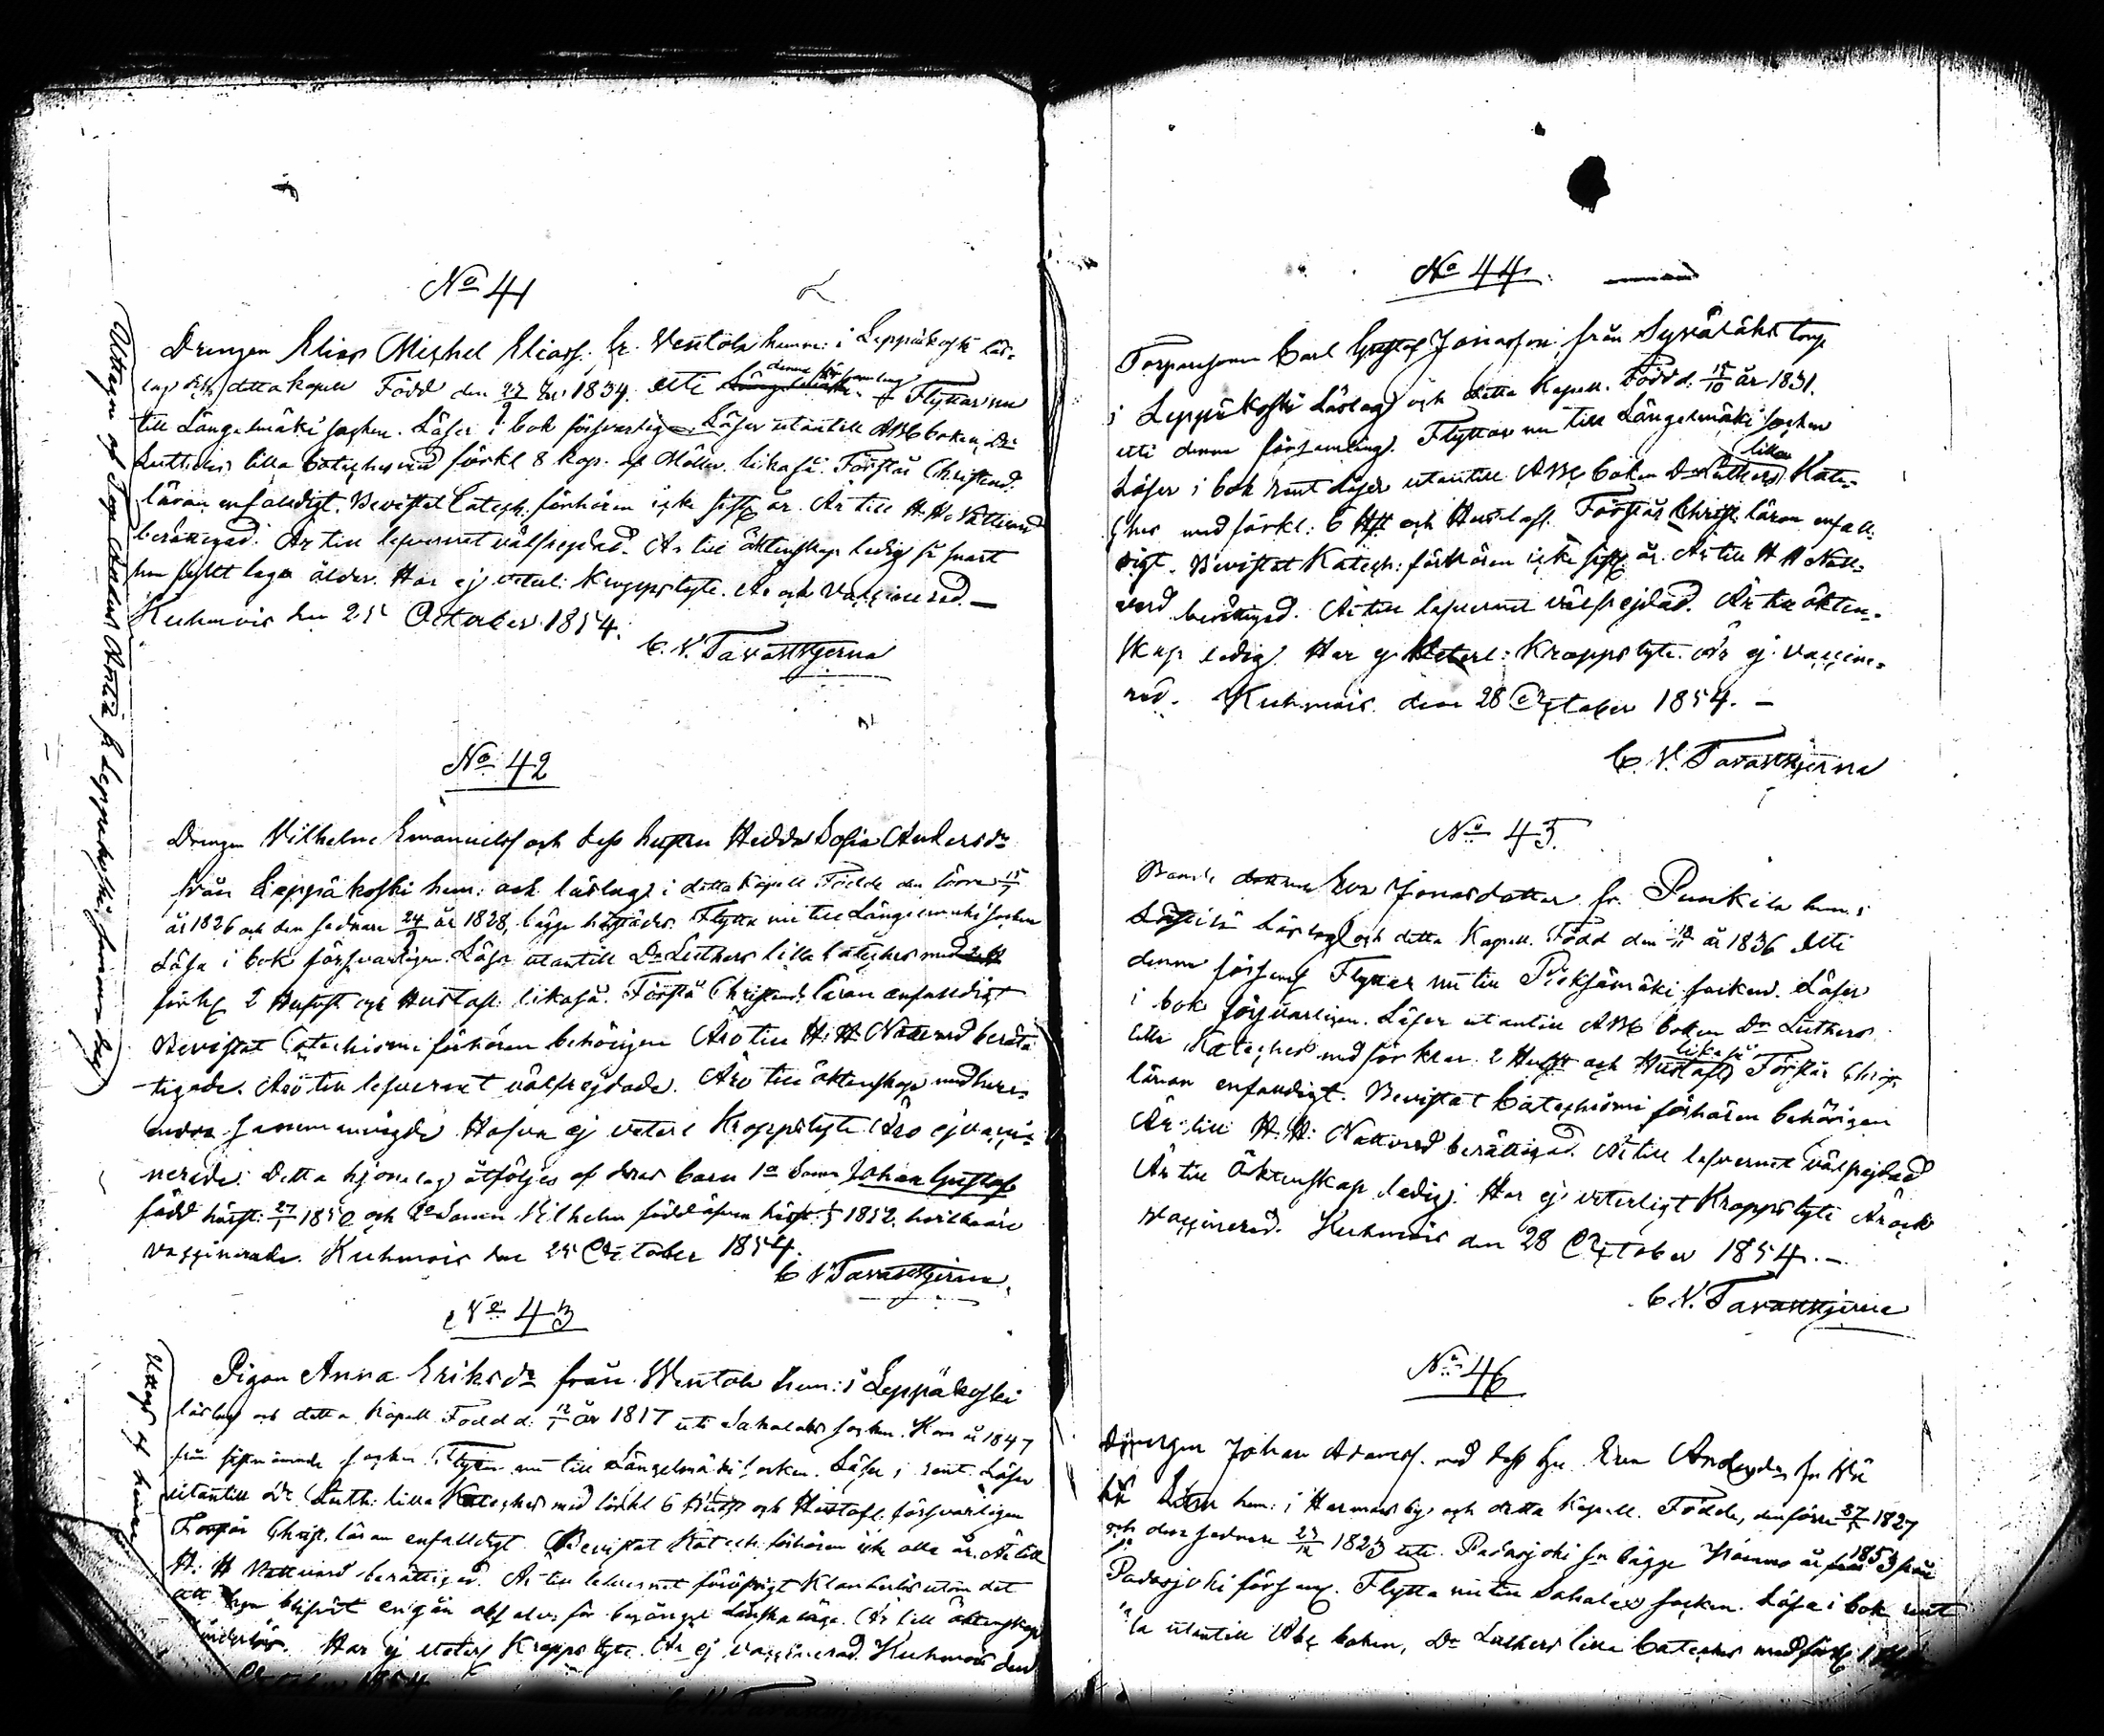 No 41
Drengen Elias Michel Eliass. fr. Ventola hemm: i Leppäkoski läs-
lag och detta kapell Född den 27/9 1834 uti denna församling Flyttar nu
till Längelmäki socken. Läser i bok försvarlig. Läser utantill ABC boken, Dr
Luthers lilla Cateches med förkl 8 kap. af Möller likaså. Förstår Christend.
läran enfaldigt. Bevistat Catech. förhören icke sista år. Är till H. H. Nattvard
berättigad. Är till lefvernet välfrejdad. Är till äktenskap ledig så snart
han fyllt laga ålder. Har ej veterl: Kroppslyte. Är och vaccinerad. —
Kuhmois den 25 October 1854.
C. N. Tavaststjerna
No 42
Drengen Vilhelm Emanuelss och dess hustru Hedda Sofia Andersdr
från Leppäkoski hem: och läslag i detta Kapell Födde den förre 15/7
år 1826 och den sednare 24/9 år 1828, bägge härstädes. Flytta nu till Längelmäki socken
Läsa i bok försvarligen. Läsa utantill Dr Luthers lilla cateches med
förkl 2 Hufst och Hustafl. likaså. Förstå Christend. läran enfaldigt
Bevistat Catechismi förhören behörigen Äro till H. H. Nattvard berät-
tigade. Äro till lefvernet välfrejdade. Äro till äktenskap med hvar-
andra sammanvigde Hafva ej veterl Kroppslyte Äro ej vacci-
nerade. Detta hjonelag åtföljes af deras barn 1o Sonen Johan Gustaf
född härst: 27/1 1850 och 2o Sonen Vilhelm född äfven härst: 1852, hvilka äro
vaccinerade. Kuhmois den 25 October 1854.
C N Tavaststjerna.
No 43
Pigan Anna Eriksdr från Wentola hem: i Leppäkoski
läslag och detta Kapell Född d. 12/1 år 1817 uti Sahalaks socken. Kom år 1847
från sistnämnde socken Flyttar nu till Längelmäki socken. Läser i rent. Läser
utantill Dr Luth: lilla Kateches med förkl 6 Hufst och Hustafl. försvarligen
Förstår Christ. läran enfaldigt Bevistat Katech. förhören icke alla år. Är till
H. H Nattvard berättigad. Är till lefvernet föröfrigt klanderlös utom det
att hon blifvit en gång absolv. för begånget Är till äktenskap
hinderlös. Har ej veterl Kroppslyte. Är ej vaccinerad. Kuhmois den
October 1854
C. N. Tavaststjerna
Uttagen af Anders Antila fr Leppäkoski
Uttaget af henne
No 44.
Torparesonen Carl Gustaf Jonasson från Syvälähti torp
i Leppäkoski Läslag och detta Kapell. Född d. 15/10 år 1831.
uti denna församling. Flyttar nu till Längelmäki socken
Läser i bok rent Läser utantill ABC boken Dr Luthers lilla Kate-
ches med förkl: 6 Hft och Hustafl. Förstår Christ. läran enfall-
digt. Bevistat Katech: förhören icke sista år. Är till H H Natt-
vard berättigad. Är till lefvernet välfrejdad. Är till äkten-
skap ledig. Har ej Veterl: Kroppslyte. Är ej vaccine-
rad. Kuhmois den 28 October 1854. —
C. N. Tavaststjerna
No 45.
Bonde dottren Eva Jonasdotter fr. Punkila hem: i
Läslag och detta Kapell. Född den år 1836 Uti
denna förseml Flyttar nu till Pieksämäki socken. Läser
i bok försvarligen. Läser utantill ABC boken Dr Luthers
lilla Kateches med förklar. 2 Hufst och Hustafl likaså Förstår Christ
läran enfaldigt. Bevistat Catechismi förhören behörigen
Är till H. H: Nattvard berättigad. Är till lefvernet välfrejdad
Är till Äktenskap ledig. Har ej veterligt Kroppslyte Är ock
vaccinerad. Kuhmois den 28 October 1854. —
C. N. Tavaststjerna
No 46
Drengen Johan Adamss. med dess hu Eva Andersdr fr
hem: i Harmas by och detta Kapell. Födde, den förre 27 1827
och den sednare 23/12 1823 uti Padasjoki fr bägge komne år 1853 från
Padasjoki förseml. Flytta nu till Sahalax socken. Läsa i bok rent
utantill Abc boken, Dr Luthers lilla Cateches med förkl